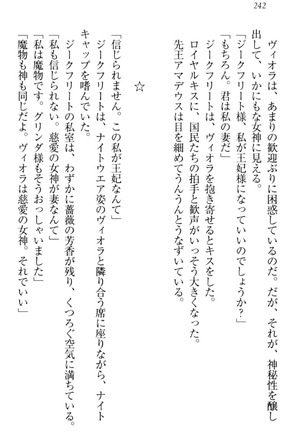 242
ヴィオラは、あまりの歓迎ぶりに困惑しているのだ。だが、それが、神秘性を醸し
出して、いかにもな女神に見える。
「ジークフリート様、私が王妃様になっていいのでしょうか?」
「もちろん。君は私の妻だ」
ジークフリートは、ヴィオラを抱き寄せるとキスをした。
ロイヤルキスに、国民たちの拍手と歓声がいっそう大きくなった。
先王アマデウスは目を細めてうんうんとうなずいている。
☆
「信じられません。この私が王妃なんて」
ジークフリートは、ナイトウエア姿のヴィオラと隣り合う席に座りながら、ナイト
キャップを嗜んでいた。
ジークフリートの私室は、わずかに薔薇の芳香が残り、くつろぐ空気に満ちている。
「私も信じられない。慈愛の女神が妻なんて」
「私は魔物です。グリンダ様もそうおっしゃいました」
「魔物も神も同じだよ。ヴィオラは慈愛の女神。それでいい」